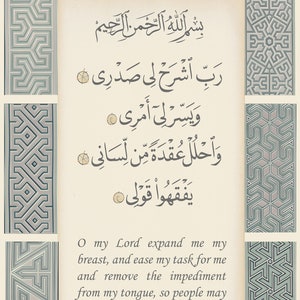 بسم الله الرحمن الرحيم
رَبِّ ٱشْرَحْ لِى صَدْرِى
وَيَسِّرْ لِىٓ أَمْرِى
وَٱحْلُلْ عُقْدَةً مِّن لِّسَانِى
يَفْقَهُوا۟ قَوْلِى
O my Lord expand me my
breast, and ease my task for me
and remove the impediment
from my tongue, so people may